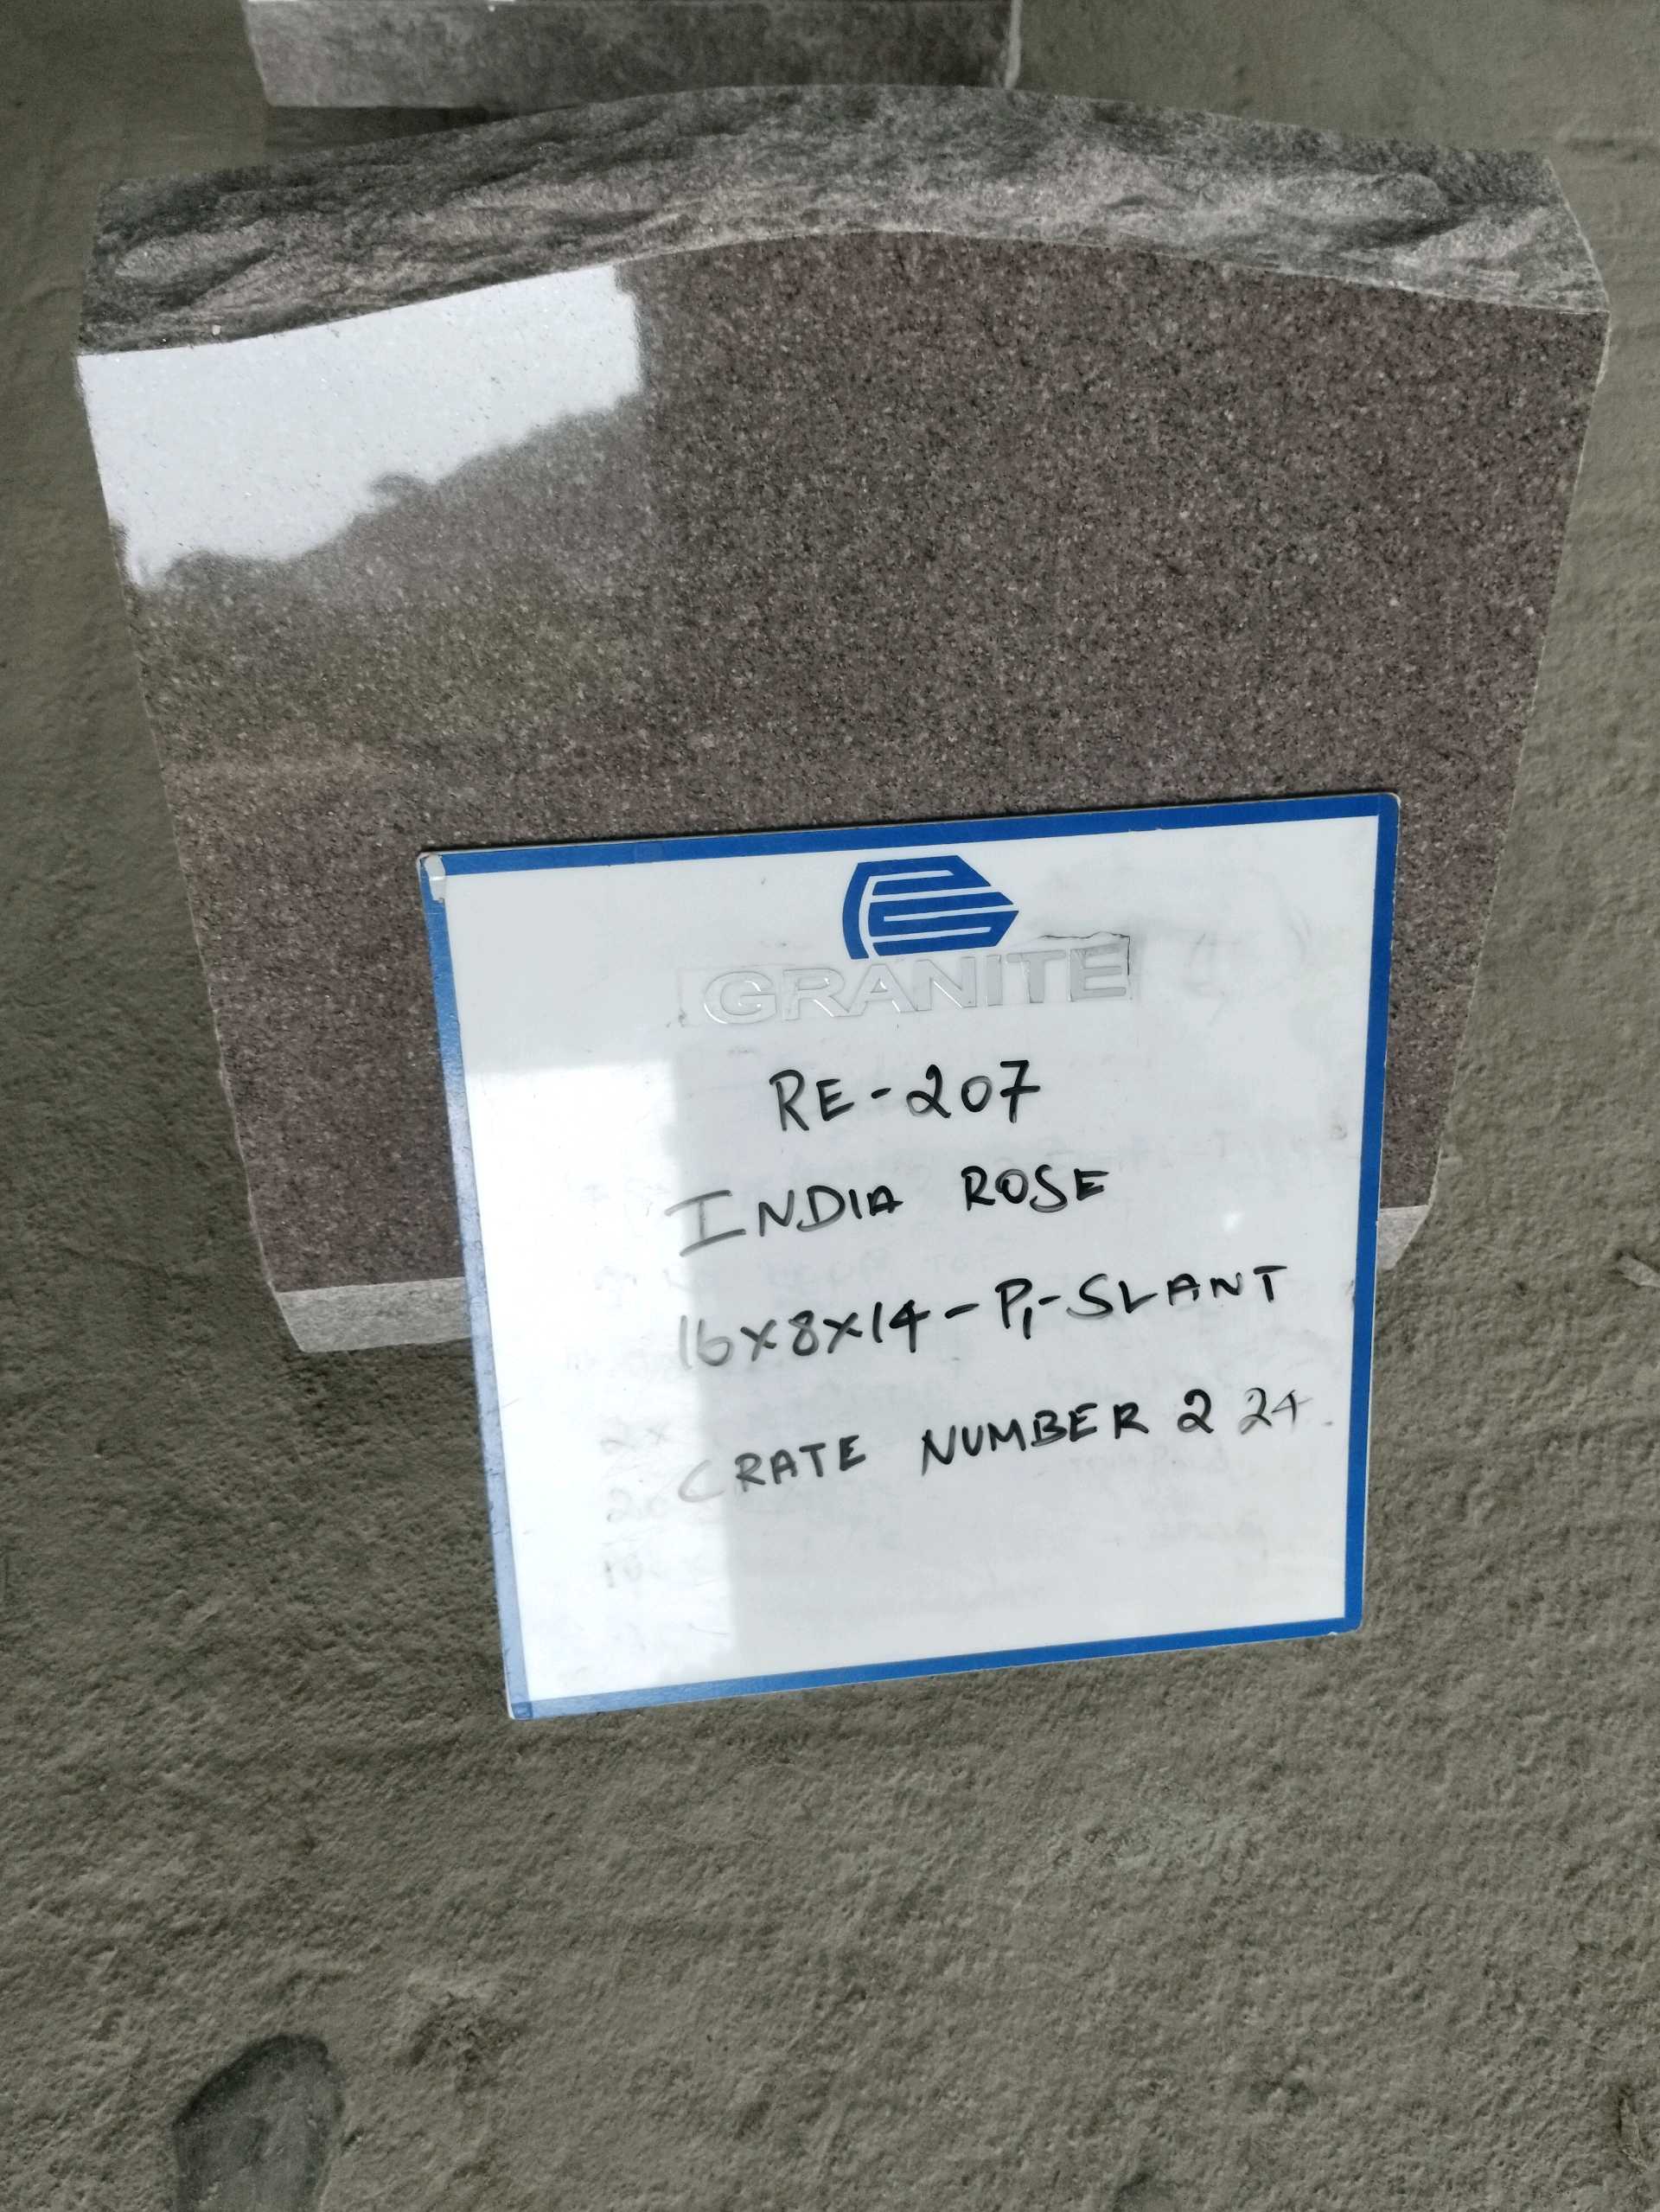 GRANITE
RE-207
INDIA ROSE
16x8x14-P1-SLANT
CRATE NUMBER 2 24